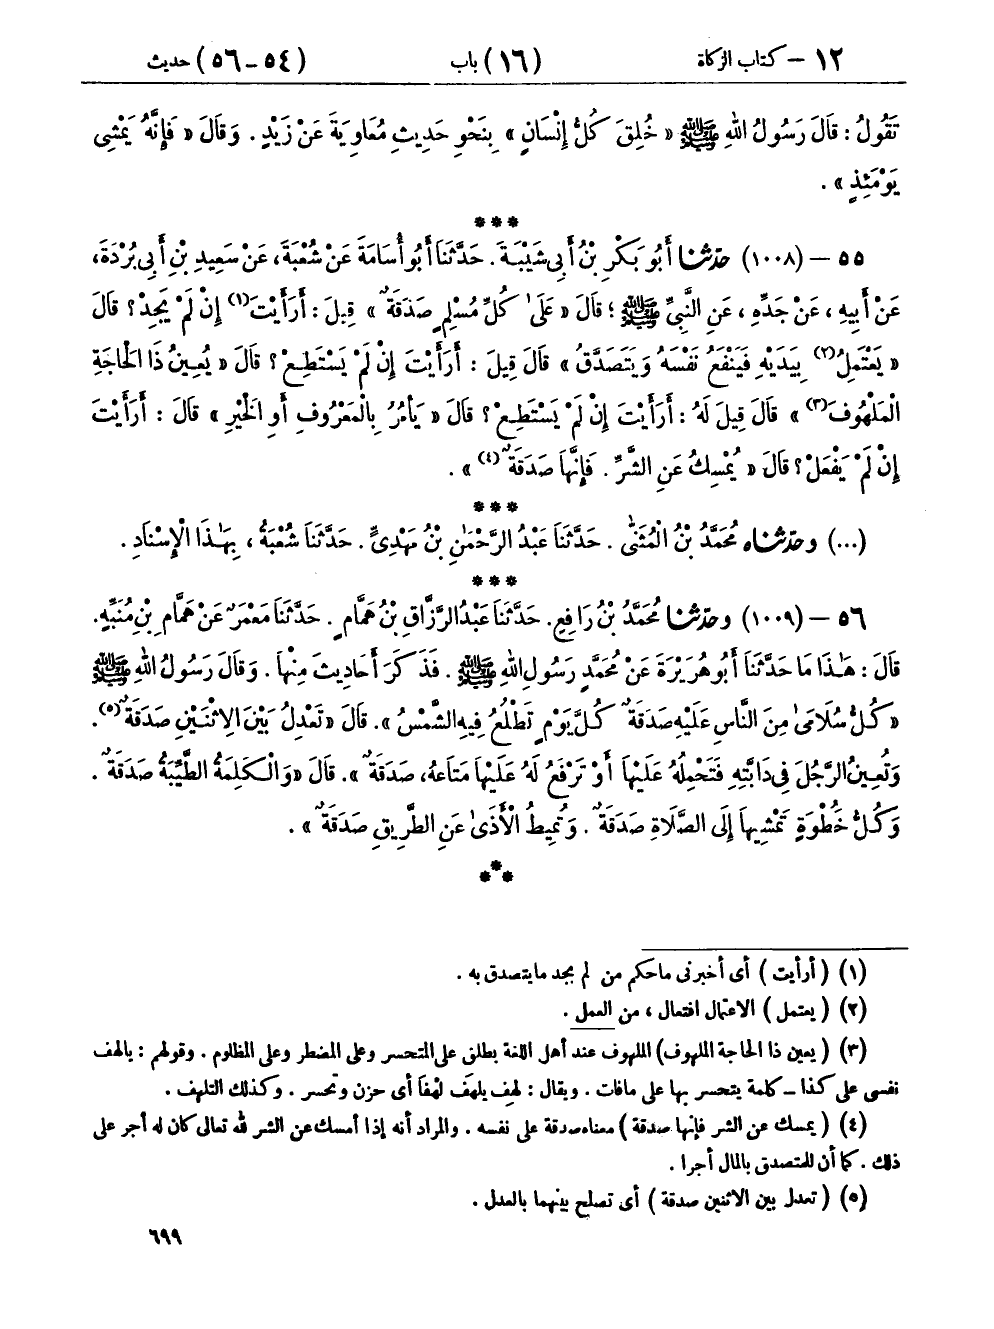 ١٢ – كتاب الزكاة (١٦) باب (٥٤ – ٥٦) حديث
تَقُولُ : قَالَ رَسُولُ اللهِ ﷺ « خُلِقَ كُلُّ إِنْسَانٍ » بِنَحْوِ حَدِيثِ مُعَاوِيَةَ عَنْ زَيْدٍ . وَقَالَ « فَإِنَّهُ يَمْشِى
يَوْمَئِذٍ » .
***
٥٥ – (١٠٠٨) حدّثنا أَبُو بَكْرِ بْنُ أَبِى شَيْبَةَ . حَدَّثَنَا أَبُو أُسَامَةَ عَنْ شُعْبَةَ، عَنْ سَعِيدِ بْنِ أَبِى بُرْدَةَ،
عَنْ أَبِيهِ ، عَنْ جَدِّهِ ، عَنِ النَّبِىِّ ﷺ ؛ قَالَ « عَلَىٰ كُلِّ مُسْلِمٍ صَدَقَةٌ » قِيلَ : أَرَأَيْتَ(١) إِنْ لَمْ يَجِدْ ؟ قَالَ
« يَعْتَمِلُ(٢) بِيَدَيْهِ فَيَنْفَعُ نَفْسَهُ وَيَتَصَدَّقُ » قَالَ قِيلَ : أَرَأَيْتَ إِنْ لَمْ يَسْتَطِعْ ؟ قَالَ « يُعِينُ ذَا الْحَاجَةِ
الْمَلْهُوفَ(٣) » قَالَ قِيلَ لَهُ : أَرَأَيْتَ إِنْ لَمْ يَسْتَطِعْ ؟ قَالَ « يَأْمُرُ بِالْمَعْرُوفِ أَوِ الْخَيْرِ » قَالَ : أَرَأَيْتَ
إِنْ لَمْ يَفْعَلْ ؟ قَالَ « يُمْسِكُ عَنِ الشَّرِّ . فَإِنَّهَا صَدَقَةٌ(٤) » .
***
(...) وحدّثناه مُحَمَّدُ بْنُ الْمُثَنَّىٰ . حَدَّثَنَا عَبْدُ الرَّحْمَٰنِ بْنُ مَهْدِىٍّ . حَدَّثَنَا شُعْبَةُ ، بِهَٰذَا الْإِسْنَادِ .
***
٥٦ – (١٠٠٩) وحدّثنا مُحَمَّدُ بْنُ رَافِعٍ. حَدَّثَنَا عَبْدُ الرَّزَّاقِ بْنُ هَمَّامٍ . حَدَّثَنَا مَعْمَرٌ عَنْ هَمَّامِ بْنِ مُنَبِّهٍ.
قَالَ : هَٰذَا مَا حَدَّثَنَا أَبُو هُرَيْرَةَ عَنْ مُحَمَّدٍ رَسُولِ اللهِ ﷺ . فَذَكَرَ أَحَادِيثَ مِنْهَا . وَقَالَ رَسُولُ اللهِ ﷺ
« كُلُّ سُلَامَىٰ مِنَ النَّاسِ عَلَيْهِ صَدَقَةٌ كُلَّ يَوْمٍ تَطْلُعُ فِيهِ الشَّمْسُ ». قَالَ « تَعْدِلُ بَيْنَ الِاثْنَيْنِ صَدَقَةٌ(٥).
وَتُعِينُ الرَّجُلَ فِى دَابَّتِهِ فَتَحْمِلُهُ عَلَيْهَا أَوْ تَرْفَعُ لَهُ عَلَيْهَا مَتَاعَهُ، صَدَقَةٌ ». قَالَ « وَالْكَلِمَةُ الطَّيِّبَةُ صَدَقَةٌ .
وَكُلُّ خُطْوَةٍ تَمْشِيهَا إِلَى الصَّلَاةِ صَدَقَةٌ . وَتُمِيطُ الْأَذَىٰ عَنِ الطَّرِيقِ صَدَقَةٌ » .
***
(١) ( أرأيت ) أى أخبرنى ماحكم من لم يجد مايتصدق به .
(٢) ( يعتمل ) الاعتمال افتعال ، من العمل .
(٣) ( يعين ذا الحاجة الملهوف) الملهوف عند أهل اللغة يطلق على المتحسر وعلى المضطر وعلى المظلوم . وقولهم : يالهف
نفسى على كذا – كلمة يتحسر بها على مافات . ويقال : لهِف يلهَف لهْفاً أى حزن وتحسر . وكذلك التلهف .
(٤) ( يمسك عن الشر فإنها صدقة ) معناه صدقة على نفسه . والمراد أنه إذا أمسك عن الشر لله تعالى كان له أجر على
ذلك . كما أن للمتصدق بالمال أجرا .
(٥) ( تعدل بين الاثنين صدقة ) أى تصلح بينهما بالعدل .
٦٩٩